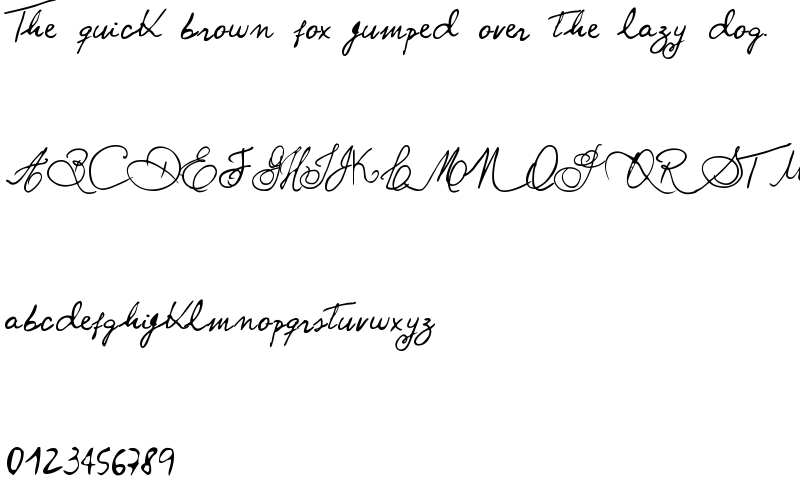 The quick brown fox jumped over the lazy dog.
ABCDEFGHIJKLMNOPQRSTU
abcdefghijklmnopqrstuvwxyz
0123456789